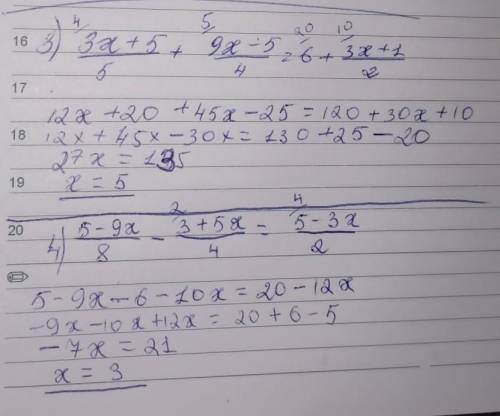 4 5 20 10
16 3) 3x+5/5 + 9x-5/4 = 6 + 3x+1/2
17
12x +20 +45x-25 = 120 +30x +10
18 12x + 45x -30x = 130 +25 -20
27x = 135
19 x = 5
2 4
20 4) 5-9x/8 - 3+5x/4 = 5-3x/2
5-9x-6-10x = 20-12x
-9x-10x+12x = 20+6-5
-7x = 21
x = 3